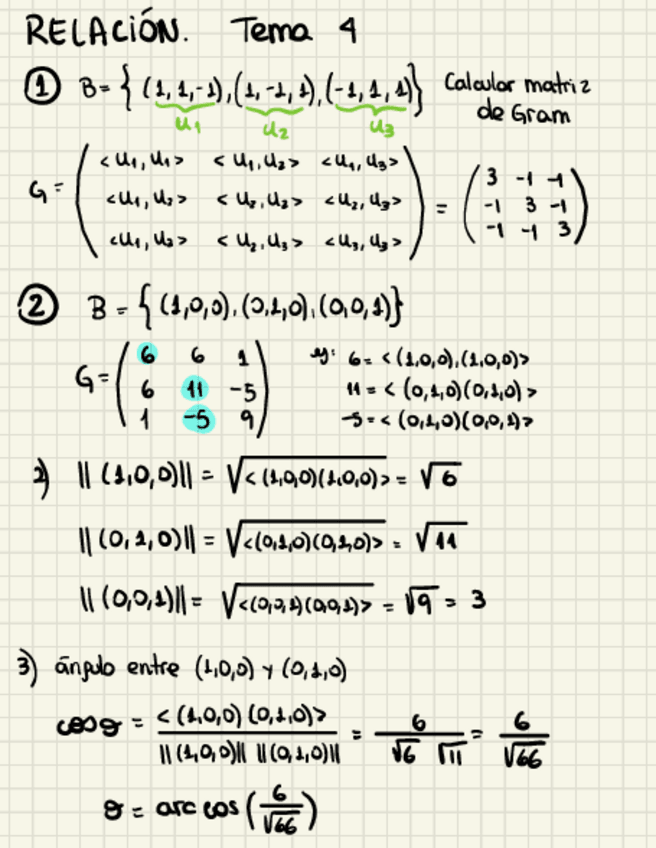 RELACIÓN. Tema 4
① B= { (1,1,-1),(1,-1,1),(-1,1,1)} Calcular matriz
u₁ u₂ u₃ de Gram
G = ( <u₁,u₁> <u₁,u₂> <u₁,u₃> ) = ( 3 -1 -1 )
<u₁,u₂> <u₂,u₂> <u₂,u₃> -1 3 -1
<u₁,u₃> <u₂,u₃> <u₃,u₃> -1 -1 3
② B = { (1,0,0),(0,1,0),(0,0,1)}
G= ( 6 6 1 ) ej: 6 = <(1,0,0),(1,0,0)>
6 11 -5 11 = <(0,1,0)(0,1,0)>
1 -5 9 -5 = <(0,1,0)(0,0,1)>
2) || (1,0,0)|| = √<(1,0,0)(1,0,0)> = √6
|| (0,1,0)|| = √<(0,1,0)(0,1,0)> = √11
|| (0,0,1)|| = √<(0,0,1)(0,0,1)> = √9 = 3
3) ángulo entre (1,0,0) y (0,1,0)
cos θ = <(1,0,0)(0,1,0)> / ||(1,0,0)|| ||(0,1,0)|| = 6 / √6 √11 = 6 / √66
θ = arc cos (6/√66)